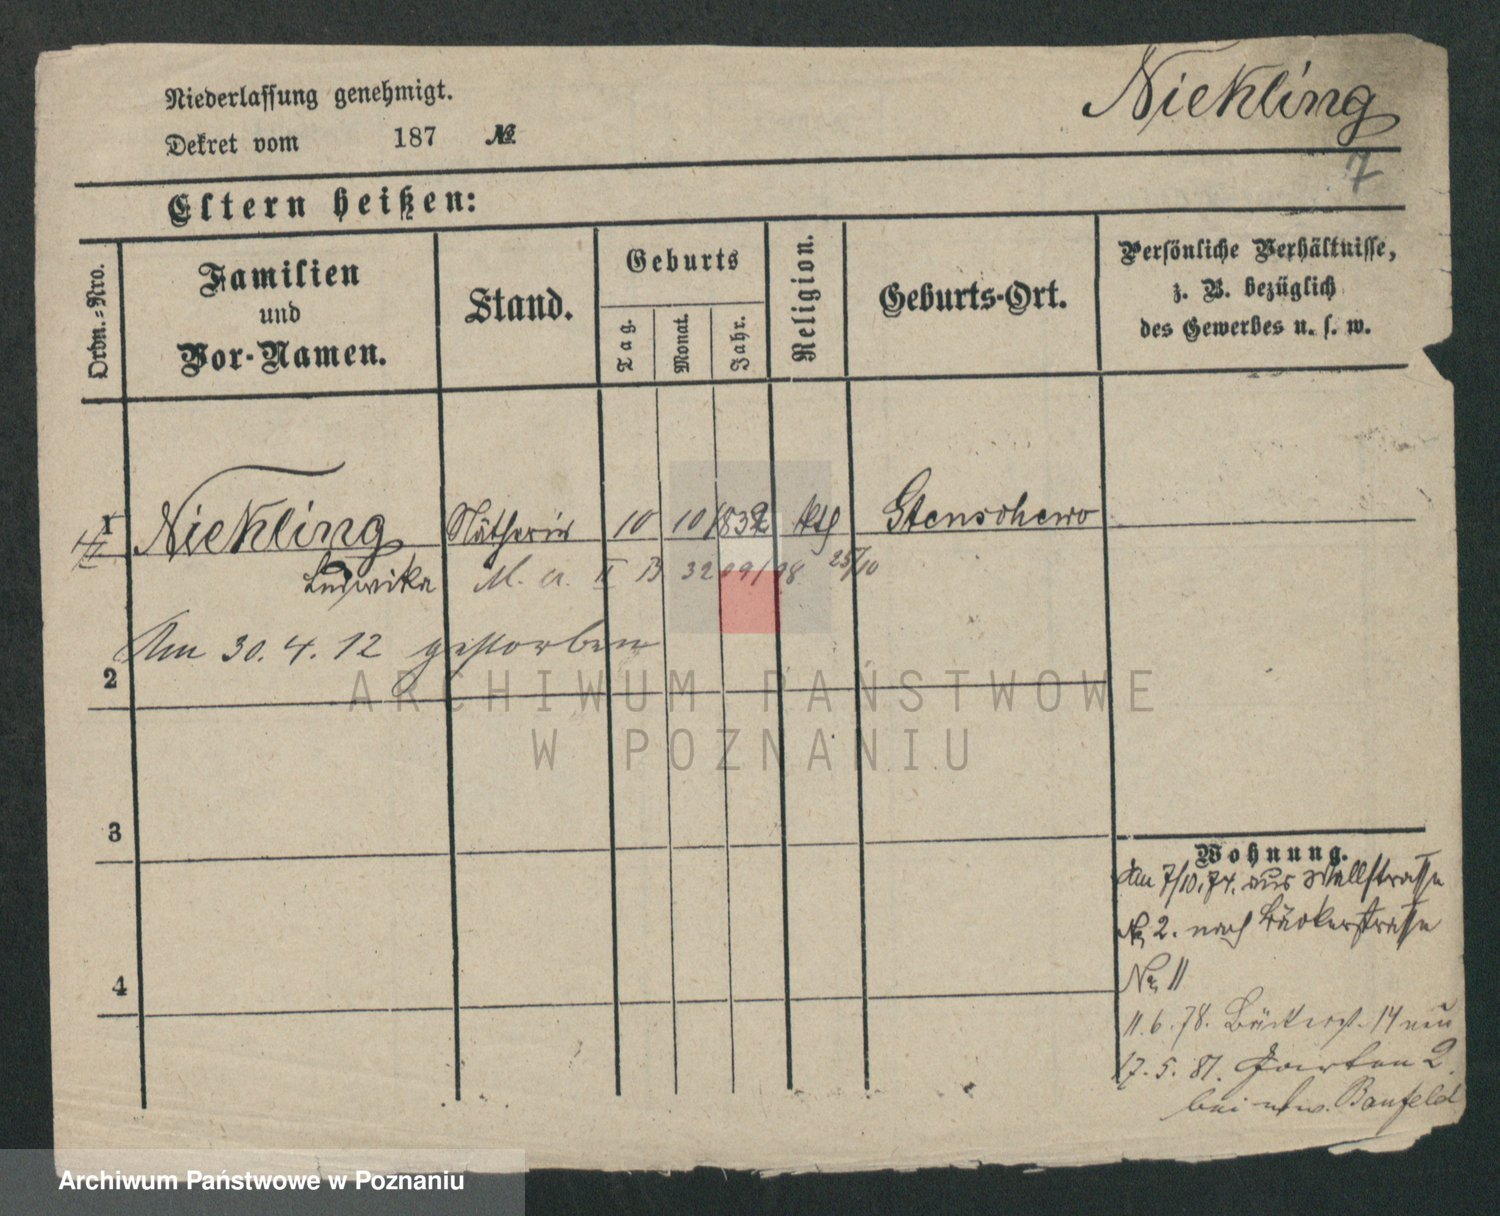 Niekling
Niederlassung genehmigt.
Dekret vom 187 №
7
Eltern heißen:
Ordn.-Nro.
Familien
und
Vor-Namen.
Stand.
Geburts
Tag.
Monat.
Jahr.
Religion.
Geburts-Ort.
Persönliche Verhältnisse,
z. B. bezüglich
des Gewerbes u. s. w.
1 Niekling Nätherin 10 10 1832 kth Stenschewo
Ludwika M. a. II B 3209/98 25/10
Am 30. 4. 12 gestorben
2
3
4
Wohnung.
Am 7/10. 74. aus Wallstrasse
No 2. nach Bäckerstrasse
No 11
11. 6. 78. Bäckerst. 14 neu
17. 5. 81. Garten 2
bei Banfeld
ARCHIWUM PAŃSTWOWE
W POZNANIU
Archiwum Państwowe w Poznaniu